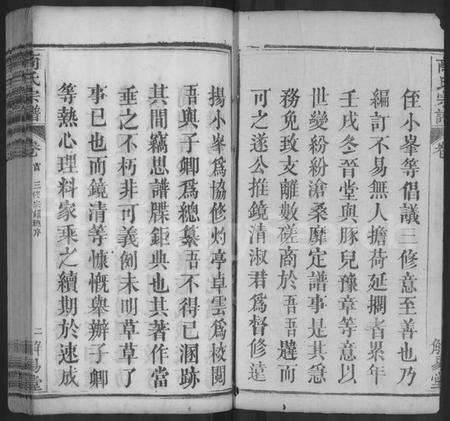 侄小峯等倡議三修意至善也乃
編訂不易無人擔荷延擱者累年
壬戌冬晉堂與豚兒豫章等意以
世變紛紛滄桑靡定譜事是其急
務免致支離數磋商於吾吾韙而
可之遂公推鏡清淑君爲督修達
揚小峯爲協修灼亭卓雲爲校閱
吾與子卿爲總纂吾不得已溷跡
其間竊思譜牒鉅典也其著作當
垂之不朽非可義例未明草草了
事已也而鏡清等慷慨舉辦子卿
等熱心理料家乘之續期於速成
氏宗譜
卷首
二
解易堂
氏宗譜
卷
解易堂